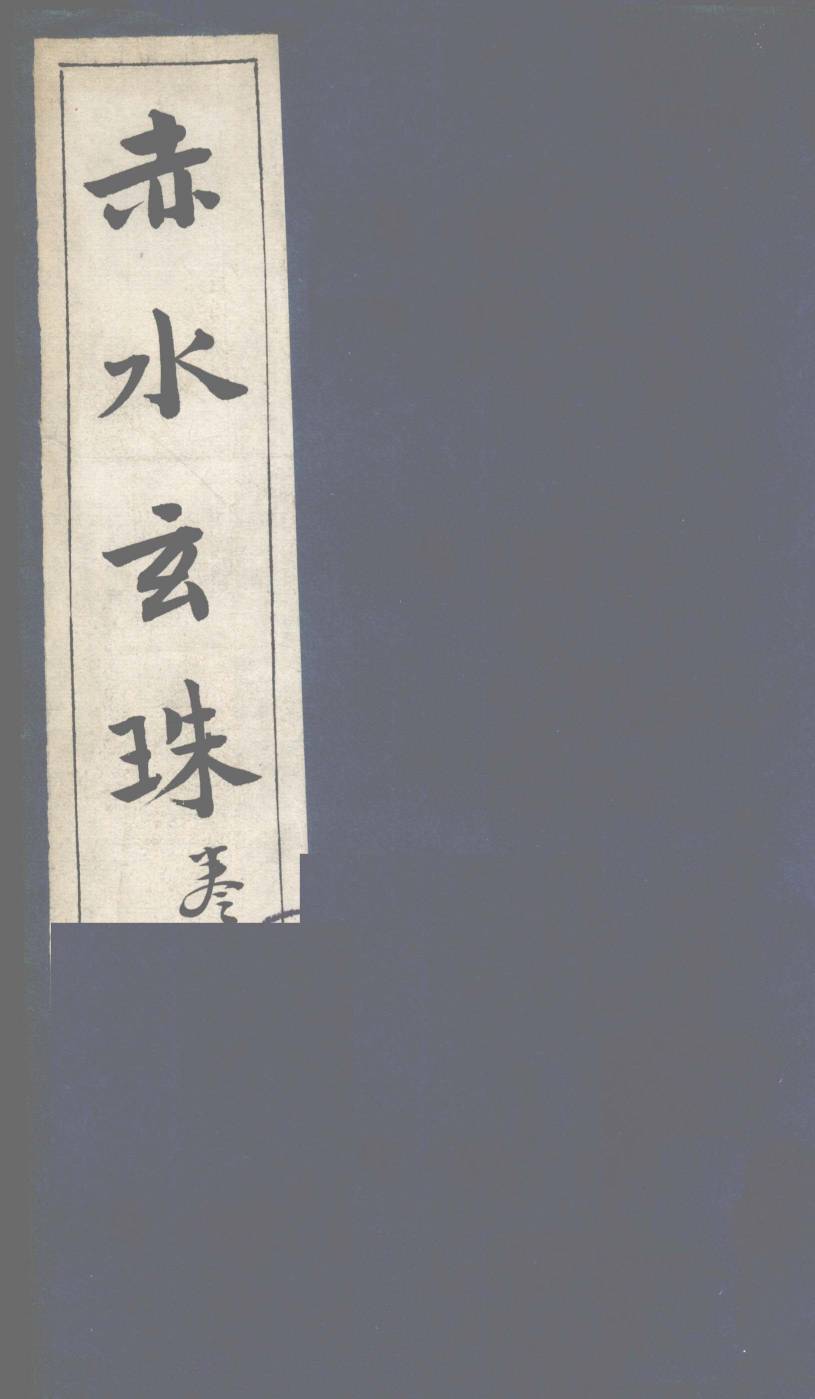 赤水玄珠
卷